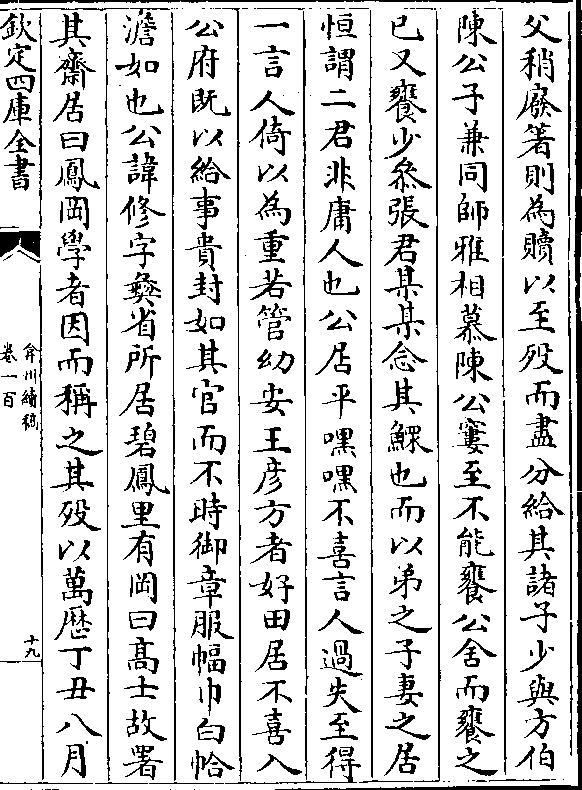 父稍廢箸則為贖以至歿而盡分給其諸子少與方伯
陳公子兼同師雅相慕陳公窶至不能饔公舍而饔之
已又饔少叅張君某某念其鰥也而以弟之子妻之居
恒謂二君非庸人也公居平嘿嘿不喜言人過失至得
一言人倚以為重若管幼安王彦方者好田居不喜入
公府既以給事貴封如其官而不時御章服幅巾白帢
澹如也公諱修字彛省所居碧鳳里有岡曰高士故署
其齋居曰鳳岡學者因而稱之其歿以萬厯丁丑八月
欽定四庫全書
弇州續稿
卷一百
十九